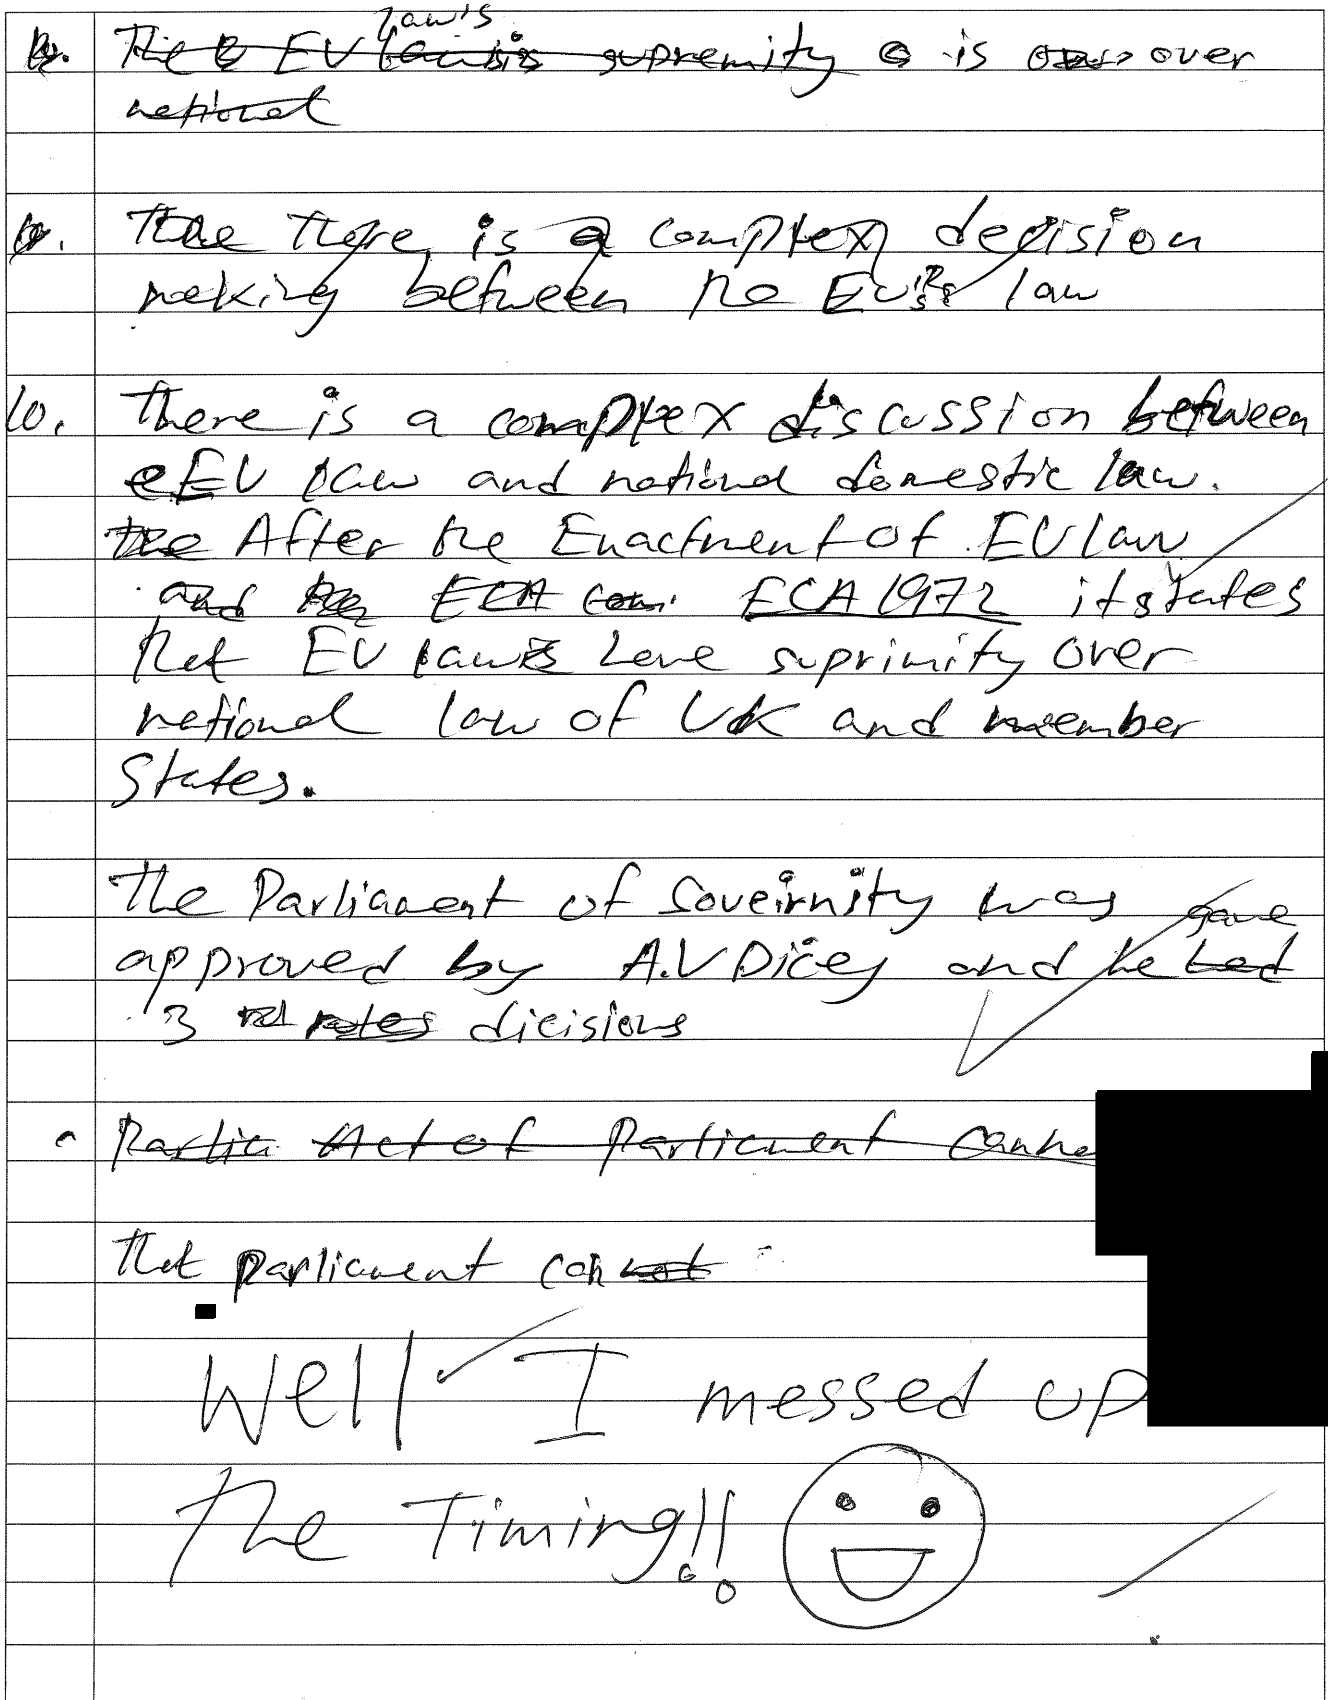 Laws
The EU supremity is over
national
There is a complex decision
making between the EU's law
10. There is a complex discussion between
EU law and national domestic law.
the After the Enactment of EU law
and the ECA ECA 1972 it states
that EU laws have suprimity over
national law of UK and member
States.
The Parliament of Soveirnity was gave
approved by A.V Dicey and he had
3 rules dicisions
Parlia Act of Parliament canno
That parliament can not
Well I messed up
The Timing!!